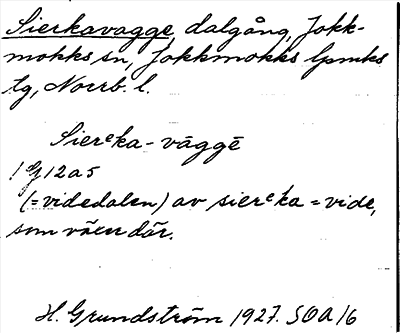 Sierkavagge, dalgång, Jokk-
mokks sn, Jokkmokks lpmks
tg, Norrb. l.
Sierᵉka-vāggē
19 12 a 5
(=videdalen) av sierᵉka = vide,
som växer där.
H. Grundström 1927. SOA 16